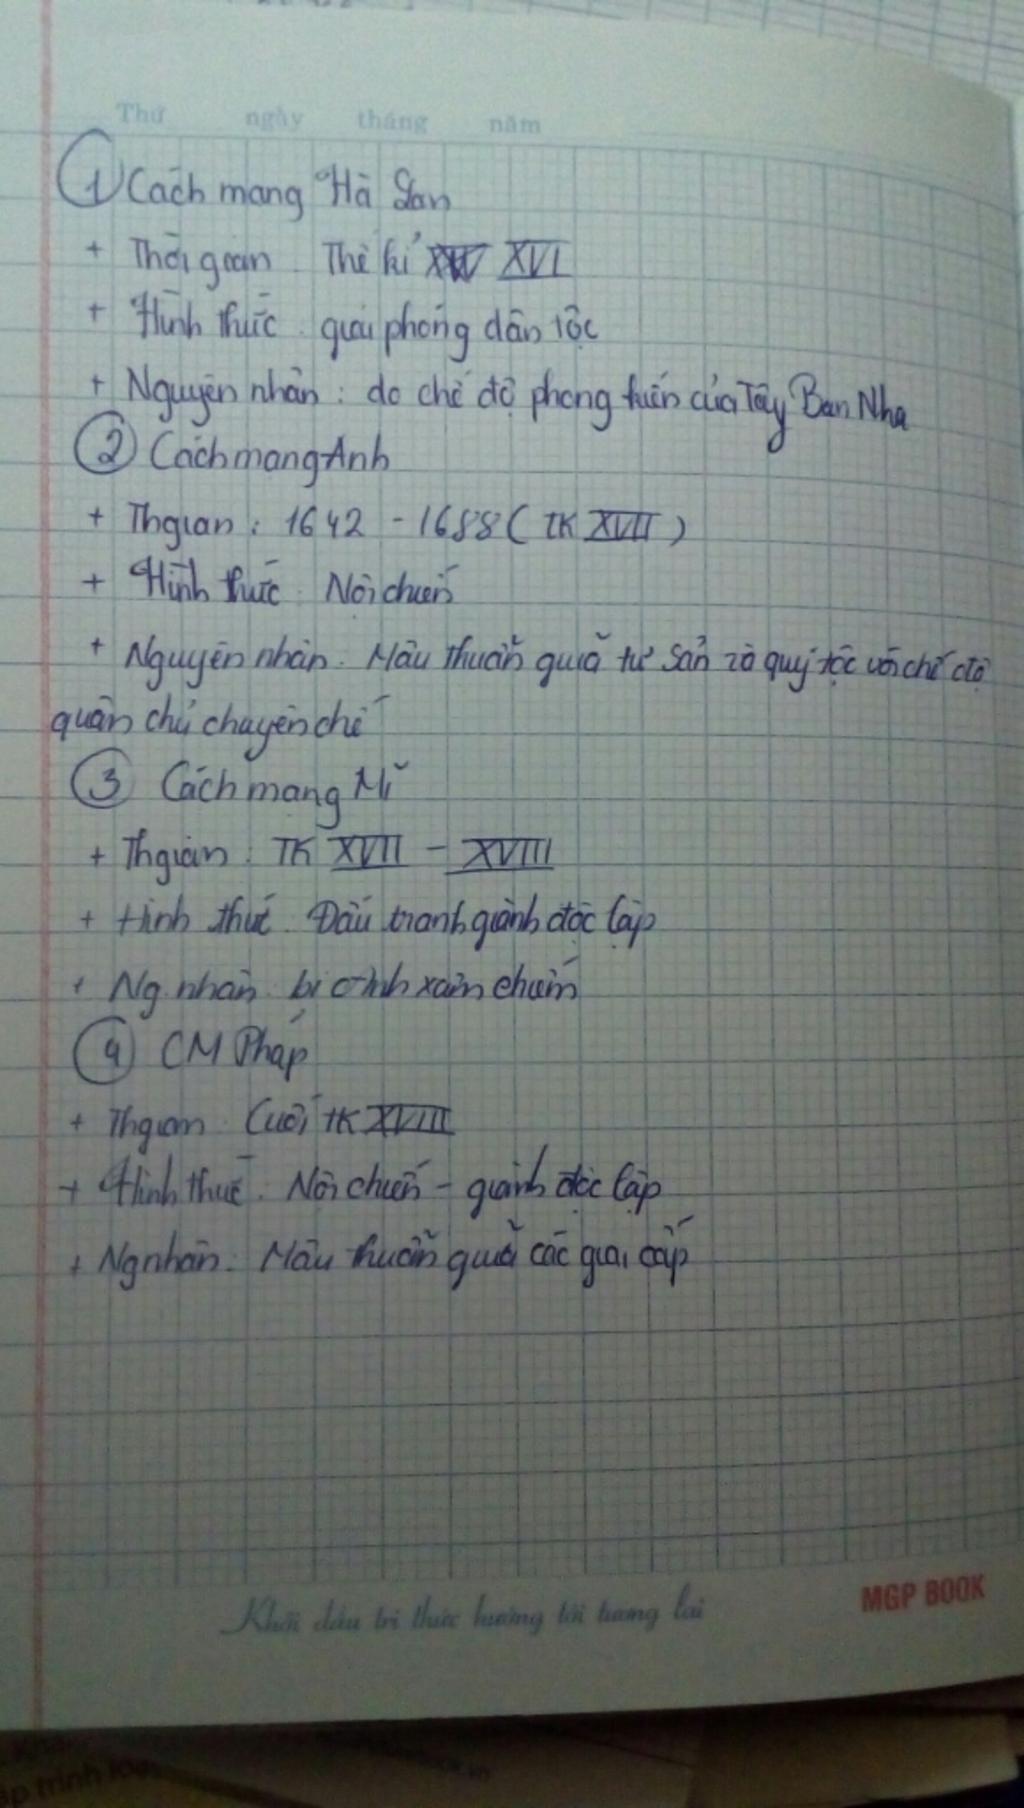 Thứ ngày tháng năm
1 Cách mạng Hà Lan
+ Thời gian Thế kỉ XVI
+ Hình thức : giải phóng dân tộc
+ Nguyên nhân : do chế độ phong kiến của Tây Ban Nha
2 Cách mạng Anh
+ Thgian : 1642 - 1688 ( TK XVII )
+ Hình thức : Nội chiến
+ Nguyên nhân : Mâu thuẫn giữa tư sản và quý tộc với chế độ
quân chủ chuyên chế
3 Cách mạng Mĩ
+ Thgian : TK XVII - XVIII
+ Hình thức : Đấu tranh giành độc lập
+ Ng.nhân : bị chiếm
4 CM Pháp
+ Thgian : Cuối TK XVIII
+ Hình thức : Nội chiến - giành độc lập
+ Ngnhân : Mâu thuẫn giữa các giai cấp
Khởi đầu tri thức hướng tới tương lai
MGP BOOK